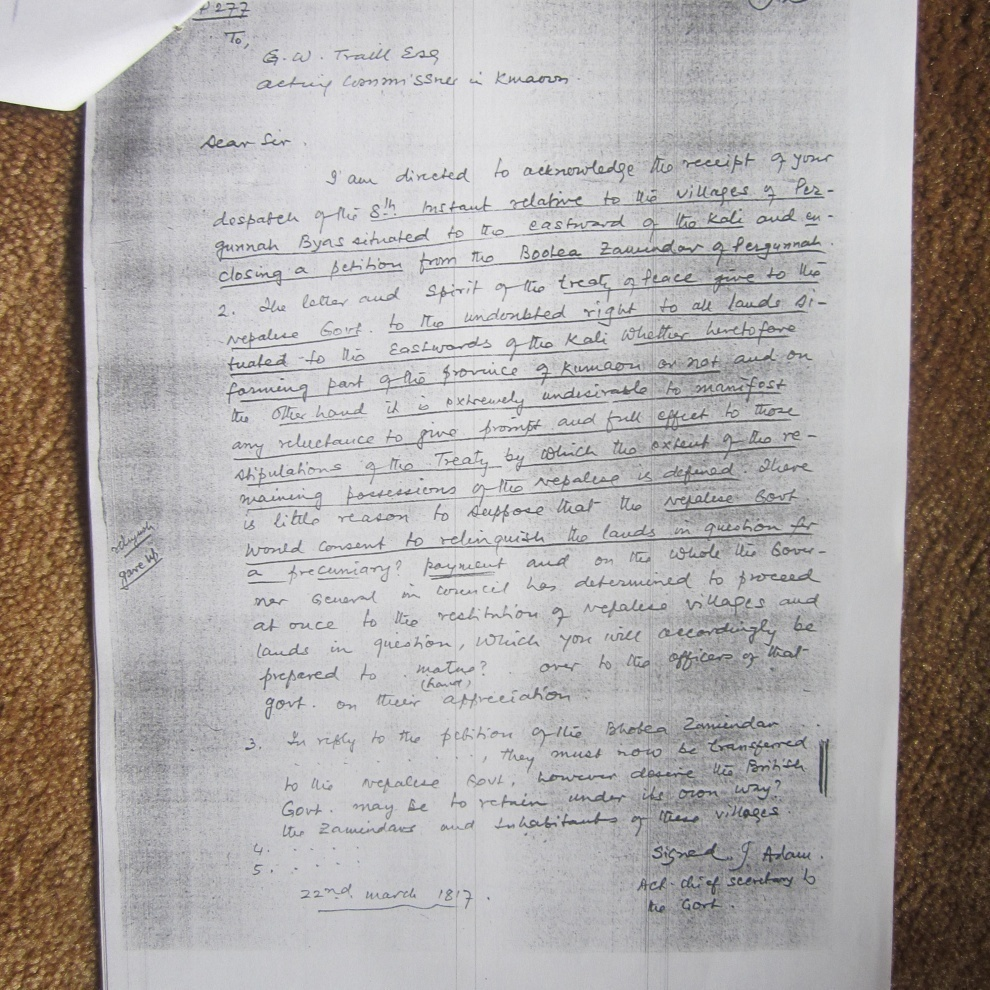 P 277
To,
G. W. Traill Esq
acting Commissner in Kmaovn.
Dear Sir.
I am directed to acknowledge the receipt of your
despatch of the 8th Instant relative to the villages of Per-
gunnah Byas situated to the eastward of the Kali and en-
closing a petition from the Bootea Zamindar of Pergunnah.
2. The letter and Spirit of the treaty of peace give to the
nepalese Govt. to the undoubted right to all lands si-
tuated to the Eastwards of the Kali whether heretofore
forming part of the province of Kumaon or not and on
the other hand it is extremely undesirable to manifest
any reluctance to give prompt and full effect to those
stipulations of the Treaty by which the extent of the re-
maining possessions of the nepalese is defined. There
is little reason to suppose that the nepalese Govt.
would consent to relinquish the lands in question for
a precuniary? payment and on the whole the Gover-
nor General in council has determined to proceed
at once to the restitution of nepalese villages and
lands in question, which you will accordingly be
prepared to matue? over to the officers of that
(hand)
govt. on their appreciation.
3. In reply to the petition of the Bhotea Zamindar
. . . . . . . , they must now be transferred
to the nepalese Govt, however desire the British
Govt. may be to retain under its own way?
the Zamindars and Inhabitants of these villages.
4. . . . . .
5. . .
Signed J. Adam.
Act. chief secretary to
the Govt.
22nd. march 1817.
gave up